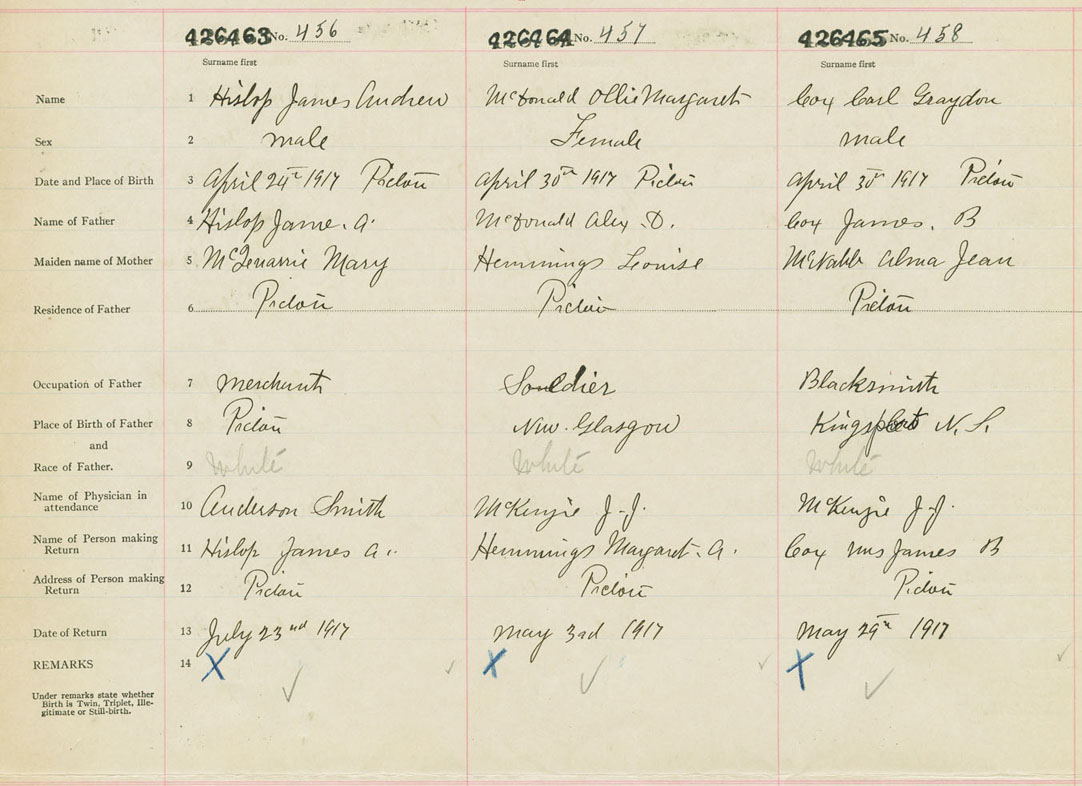 426463 No. 456 426464 No. 457 426465 No. 458
Surname first Surname first Surname first
Name 1 Hislop James Andrew McDonald Ollie Margaret Cox Carl Graydon
Sex 2 male Female male
Date and Place of Birth 3 April 24th 1917 Pictou April 30th 1917 Pictou April 30th 1917 Pictou
Name of Father 4 Hislop Jame. A. McDonald Alex. D. Cox James. B
Maiden name of Mother 5 Mary Hemmings Louise McNabb Alma Jean
Residence of Father 6 Pictou Pictou Pictou
Occupation of Father 7 Merchant Souldier Blacksmith
Place of Birth of Father 8 Pictou New. Glasgow Kingsport N. S.
and
Race of Father. 9 White White White
Name of Physician in
attendance 10 Anderson Smith McKenzie J-J. McKenzie J-J.
Name of Person making
Return 11 Hislop James A. Hemmings Margaret. A. Cox Mrs James B
Address of Person making
Return 12 Pictou Pictou Pictou
Date of Return 13 July 23nd 1917 May 3rd 1917 May 29th 1917
REMARKS 14 X X X
Under remarks state whether
Birth is Twin, Triplet, Ille-
gitimate or Still-birth.